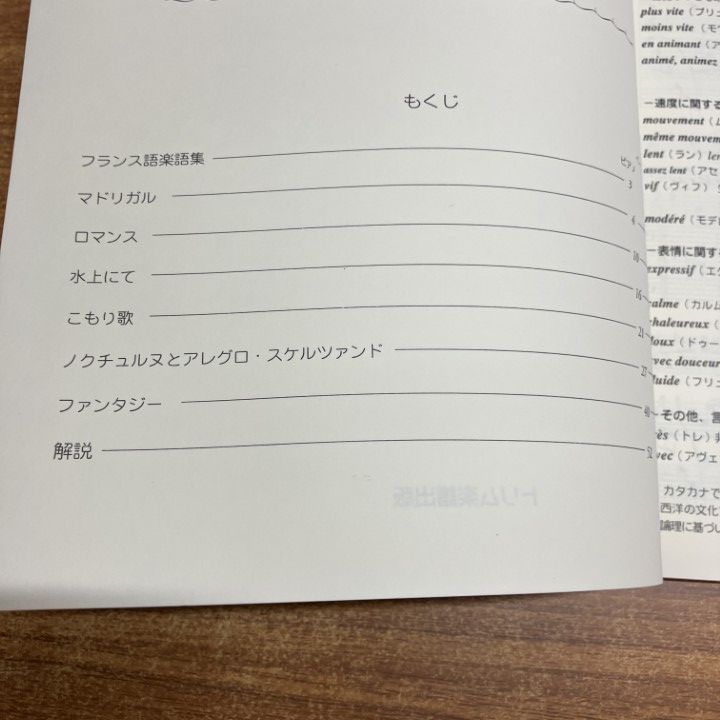 もくじ
フランス語楽語集 3
マドリガル 4
ロマンス 10
水上にて 16
こもり歌 21
ノクチュルヌとアレグロ・スケルツァンド 27
ファンタジー 40
解説 52
トリム楽譜出版
plus vite（プリュ
moins vite（モワ
en animant（ア
animé, animez
ー速度に関する
mouvement（ム
même mouvem
lent（ラン）len
assez lent（アセ
vif（ヴィフ）
modéré（モデ
ー表情に関す
expressif（エク
calme（カルム
chaleureux（
doux（ドゥー
avec douceur
fluide（フリュ
ーその他、
très（トレ）
avec（アヴェ
カタカナで
西洋の文化
論理に基づい